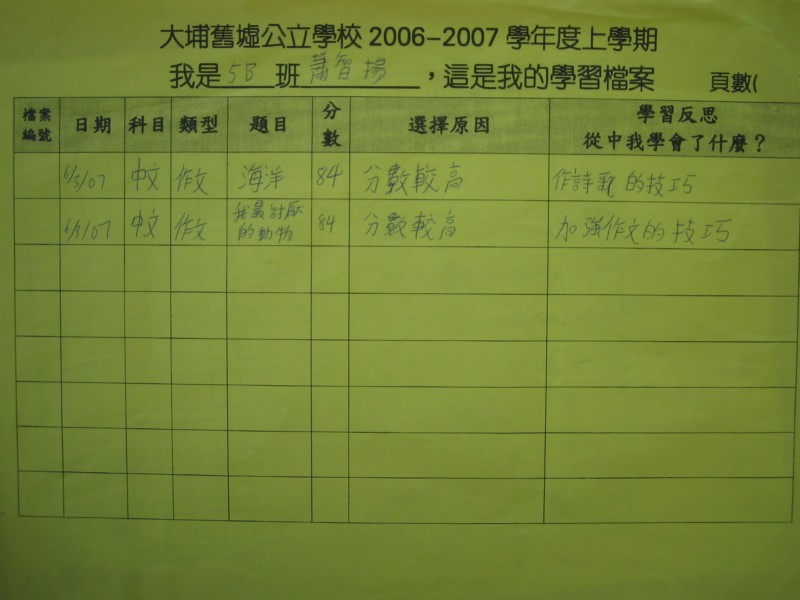 大埔舊墟公立學校 2006-2007 學年度上學期
我是 5B 班 蕭智揚 ，這是我的學習檔案 頁數(
檔案編號 日期 科目 類型 題目 分數 選擇原因 學習反思 從中我學會了什麼？
6/3/07 中文 作文 海洋 84 分數較高 作詩歌的技巧
中文 作文 我最討厭的動物 84 分數較高 加強作文的技巧